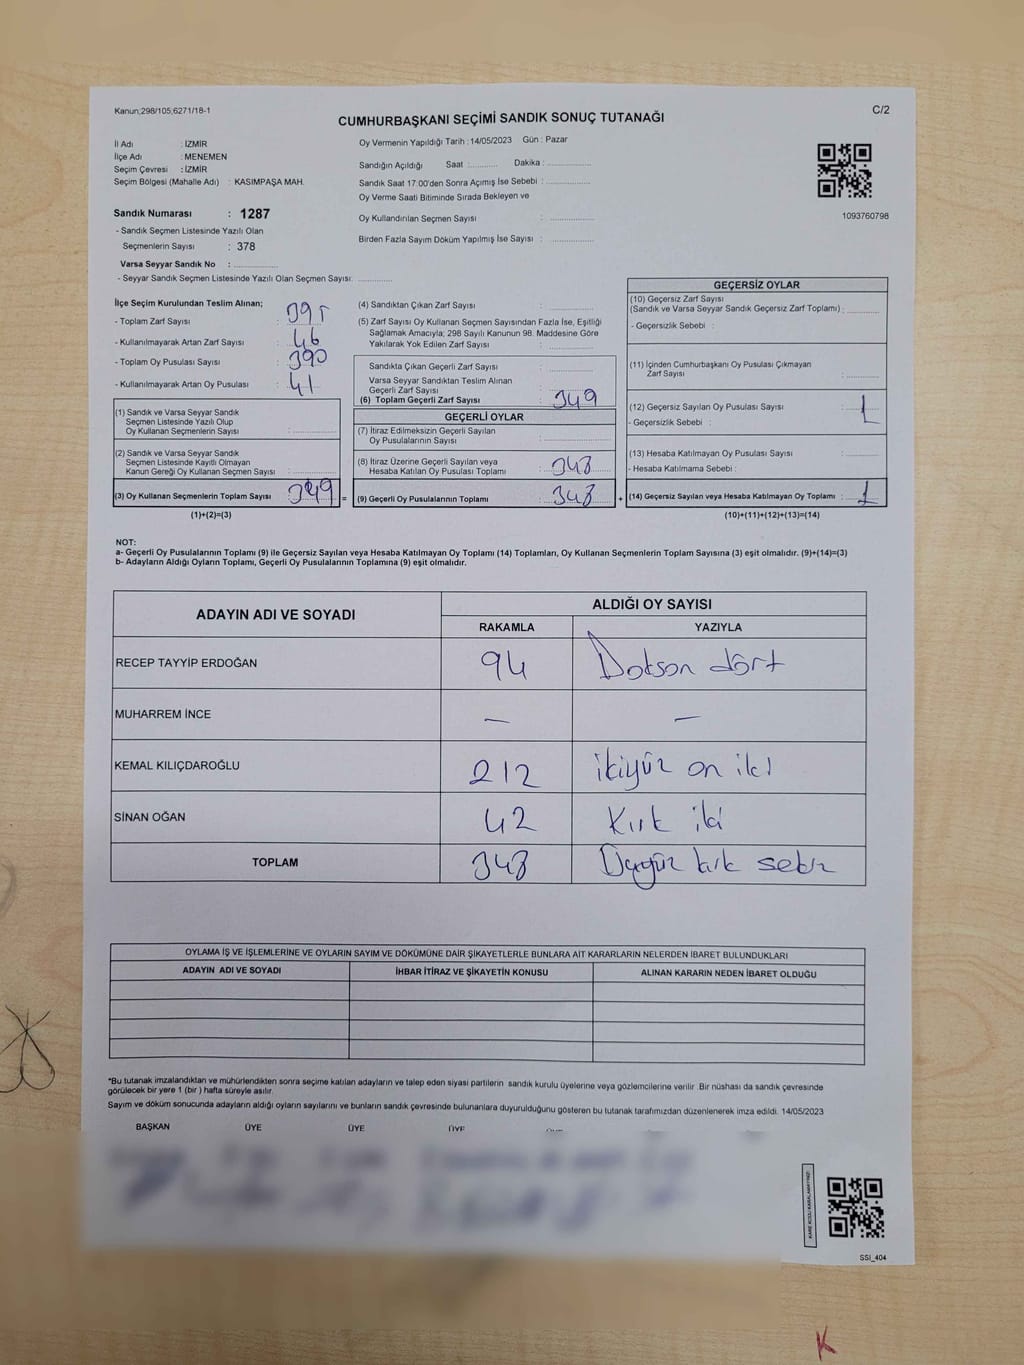 Kanun;298/105;6271/18-1
C/2
CUMHURBAŞKANI SEÇİMİ SANDIK SONUÇ TUTANAĞI
İl Adı : İZMİR
İlçe Adı : MENEMEN
Seçim Çevresi : İZMİR
Seçim Bölgesi (Mahalle Adı) : KASIMPAŞA MAH.
Sandık Numarası : 1287
- Sandık Seçmen Listesinde Yazılı Olan
Seçmenlerin Sayısı : 378
Varsa Seyyar Sandık No : ..............
- Seyyar Sandık Seçmen Listesinde Yazılı Olan Seçmen Sayısı: ............
Oy Vermenin Yapıldığı Tarih : 14/05/2023 Gün : Pazar
Sandığın Açıldığı Saat :.......... Dakika : ..............
Sandık Saat 17:00'den Sonra Açımış İse Sebebi : ..............
Oy Verme Saati Bitiminde Sırada Bekleyen ve
Oy Kullandırılan Seçmen Sayısı : ..............
Birden Fazla Sayım Döküm Yapılmış İse Sayısı : ..............
1093760798
İlçe Seçim Kurulundan Teslim Alınan;
- Toplam Zarf Sayısı : 395
- Kullanılmayarak Artan Zarf Sayısı : 46
- Toplam Oy Pusulası Sayısı : 390
- Kullanılmayarak Artan Oy Pusulası : 41
(1) Sandık ve Varsa Seyyar Sandık
Seçmen Listesinde Yazılı Olup
Oy Kullanan Seçmenlerin Sayısı : ..............
(2) Sandık ve Varsa Seyyar Sandık
Seçmen Listesinde Kayıtlı Olmayan
Kanun Gereği Oy Kullanan Seçmen Sayısı : ..............
(3) Oy Kullanan Seçmenlerin Toplam Sayısı : 349 =
(1)+(2)=(3)
(4) Sandıktan Çıkan Zarf Sayısı : ..............
(5) Zarf Sayısı Oy Kullanan Seçmen Sayısından Fazla İse, Eşitliği
Sağlamak Amacıyla; 298 Sayılı Kanunun 98. Maddesine Göre
Yakılarak Yok Edilen Zarf Sayısı : ..............
Sandıkta Çıkan Geçerli Zarf Sayısı : ..............
Varsa Seyyar Sandıktan Teslim Alınan
Geçerli Zarf Sayısı : ..............
(6) Toplam Geçerli Zarf Sayısı : 349
GEÇERLİ OYLAR
(7) İtiraz Edilmeksizin Geçerli Sayılan
Oy Pusulalarının Sayısı : ..............
(8) İtiraz Üzerine Geçerli Sayılan veya
Hesaba Katılan Oy Pusulası Toplamı : 348
(9) Geçerli Oy Pusulalarının Toplamı : 348 +
GEÇERSİZ OYLAR
(10) Geçersiz Zarf Sayısı
(Sandık ve Varsa Seyyar Sandık Geçersiz Zarf Toplamı) : ..........
- Geçersizlik Sebebi :
(11) İçinden Cumhurbaşkanı Oy Pusulası Çıkmayan
Zarf Sayısı : ..........
(12) Geçersiz Sayılan Oy Pusulası Sayısı : 1
- Geçersizlik Sebebi :
(13) Hesaba Katılmayan Oy Pusulası Sayısı : ..........
- Hesaba Katılmama Sebebi :
(14) Geçersiz Sayılan veya Hesaba Katılmayan Oy Toplamı : 1
(10)+(11)+(12)+(13)=(14)
NOT:
a- Geçerli Oy Pusulalarının Toplamı (9) ile Geçersiz Sayılan veya Hesaba Katılmayan Oy Toplamı (14) Toplamları, Oy Kullanan Seçmenlerin Toplam Sayısına (3) eşit olmalıdır. (9)+(14)=(3)
b- Adayların Aldığı Oyların Toplamı, Geçerli Oy Pusulalarının Toplamına (9) eşit olmalıdır.
ADAYIN ADI VE SOYADI
ALDIĞI OY SAYISI
RAKAMLA YAZIYLA
RECEP TAYYİP ERDOĞAN 94 Doksan dört
MUHARREM İNCE — —
KEMAL KILIÇDAROĞLU 212 ikiyüz on iki
SİNAN OĞAN 42 Kırk iki
TOPLAM 348 Üçyüz kırk sekiz
OYLAMA İŞ VE İŞLEMLERİNE VE OYLARIN SAYIM VE DÖKÜMÜNE DAİR ŞİKAYETLERLE BUNLARA AİT KARARLARIN NELERDEN İBARET BULUNDUKLARI
ADAYIN ADI VE SOYADI İHBAR İTİRAZ VE ŞİKAYETİN KONUSU ALINAN KARARIN NEDEN İBARET OLDUĞU
*Bu tutanak imzalandıktan ve mühürlendikten sonra seçime katılan adayların ve talep eden siyasi partilerin sandık kurulu üyelerine veya gözlemcilerine verilir .Bir nüshası da sandık çevresinde
görülecek bir yere 1 (bir ) hafta süreyle asılır.
Sayım ve döküm sonucunda adayların aldığı oyların sayılarını ve bunların sandık çevresinde bulunanlara duyurulduğunu gösteren bu tutanak tarafımızdan düzenlenerek imza edildi. 14/05/2023
BAŞKAN ÜYE ÜYE ÜYE
KARE KODU KARALAMAYINIZ!
SSİ_404
K